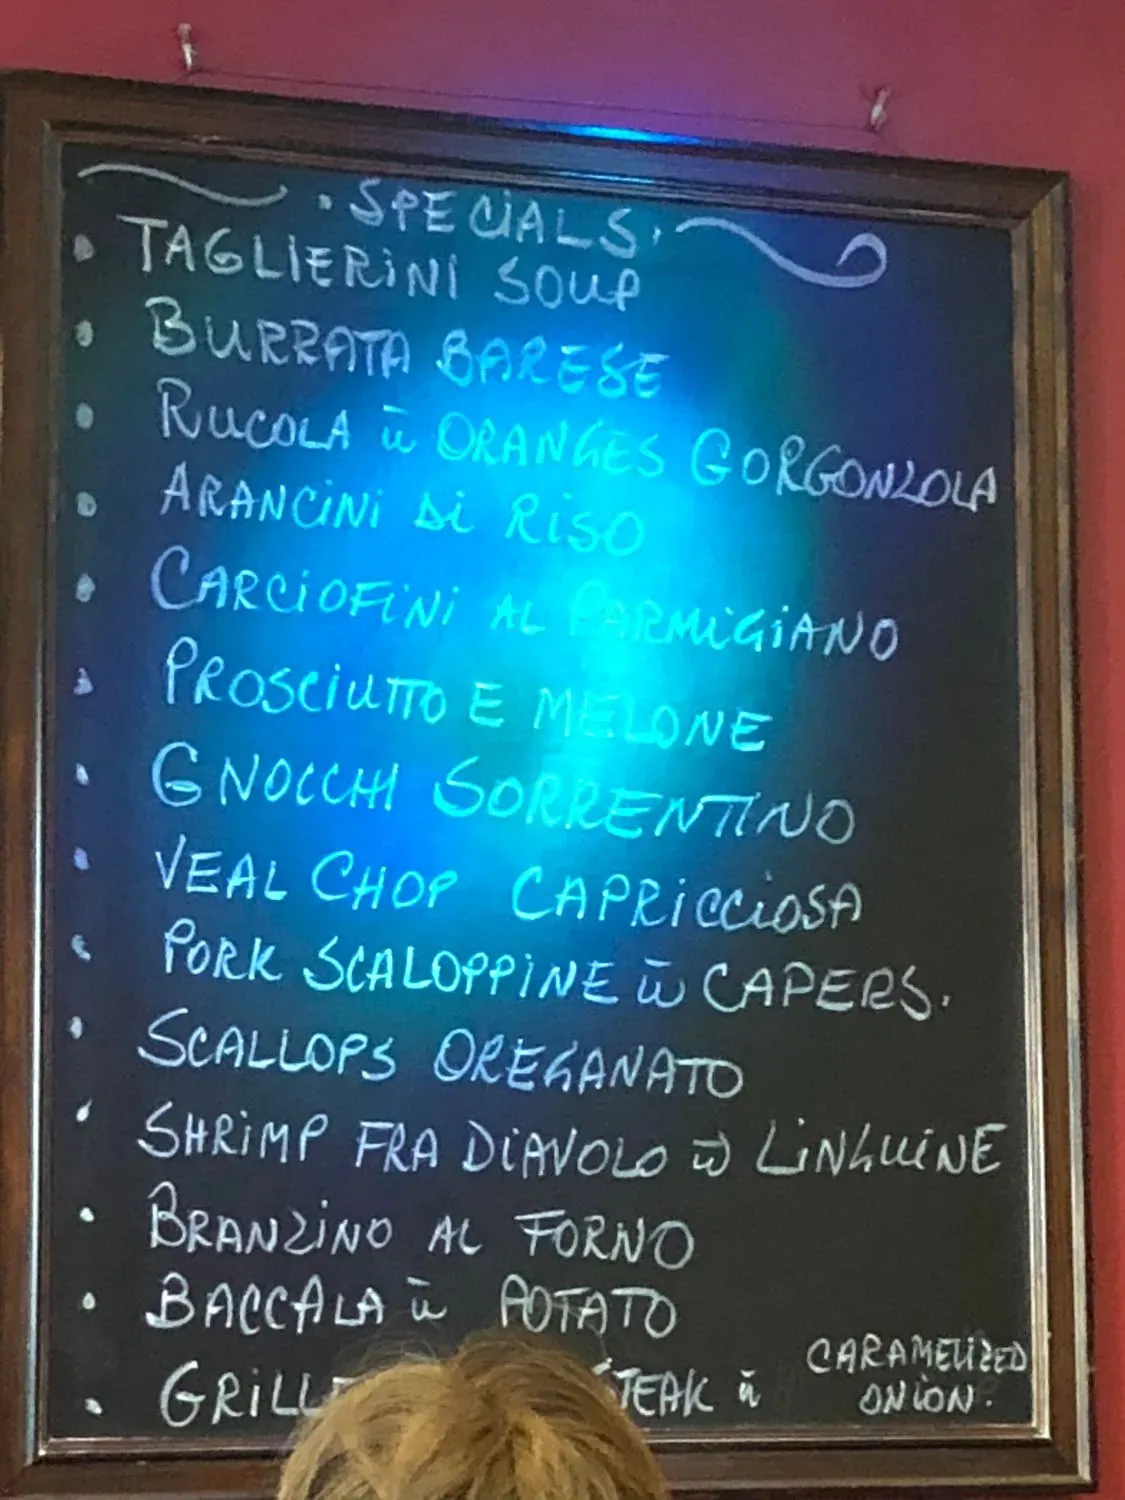 . SPECIALS.
• TAGLIERINI SOUP
• BURRATA BARESE
• RUCOLA w̄ ORANGES GORGONZOLA
• ARANCINI di RISO
• CARCIOFINI AL PARMIGIANO
• PROSCIUTTO E MELONE
• GNOCCHI SORRENTINO
• VEAL CHOP CAPRICCIOSA
• PORK SCALOPPINE w̄ CAPERS.
• SCALLOPS OREGANATO
• SHRIMP FRA DIAVOLO w̄ LINGUINE
• BRANZINO AL FORNO
• BACCALA w̄ POTATO
• STEAK w̄ CARAMELIZED
ONION.